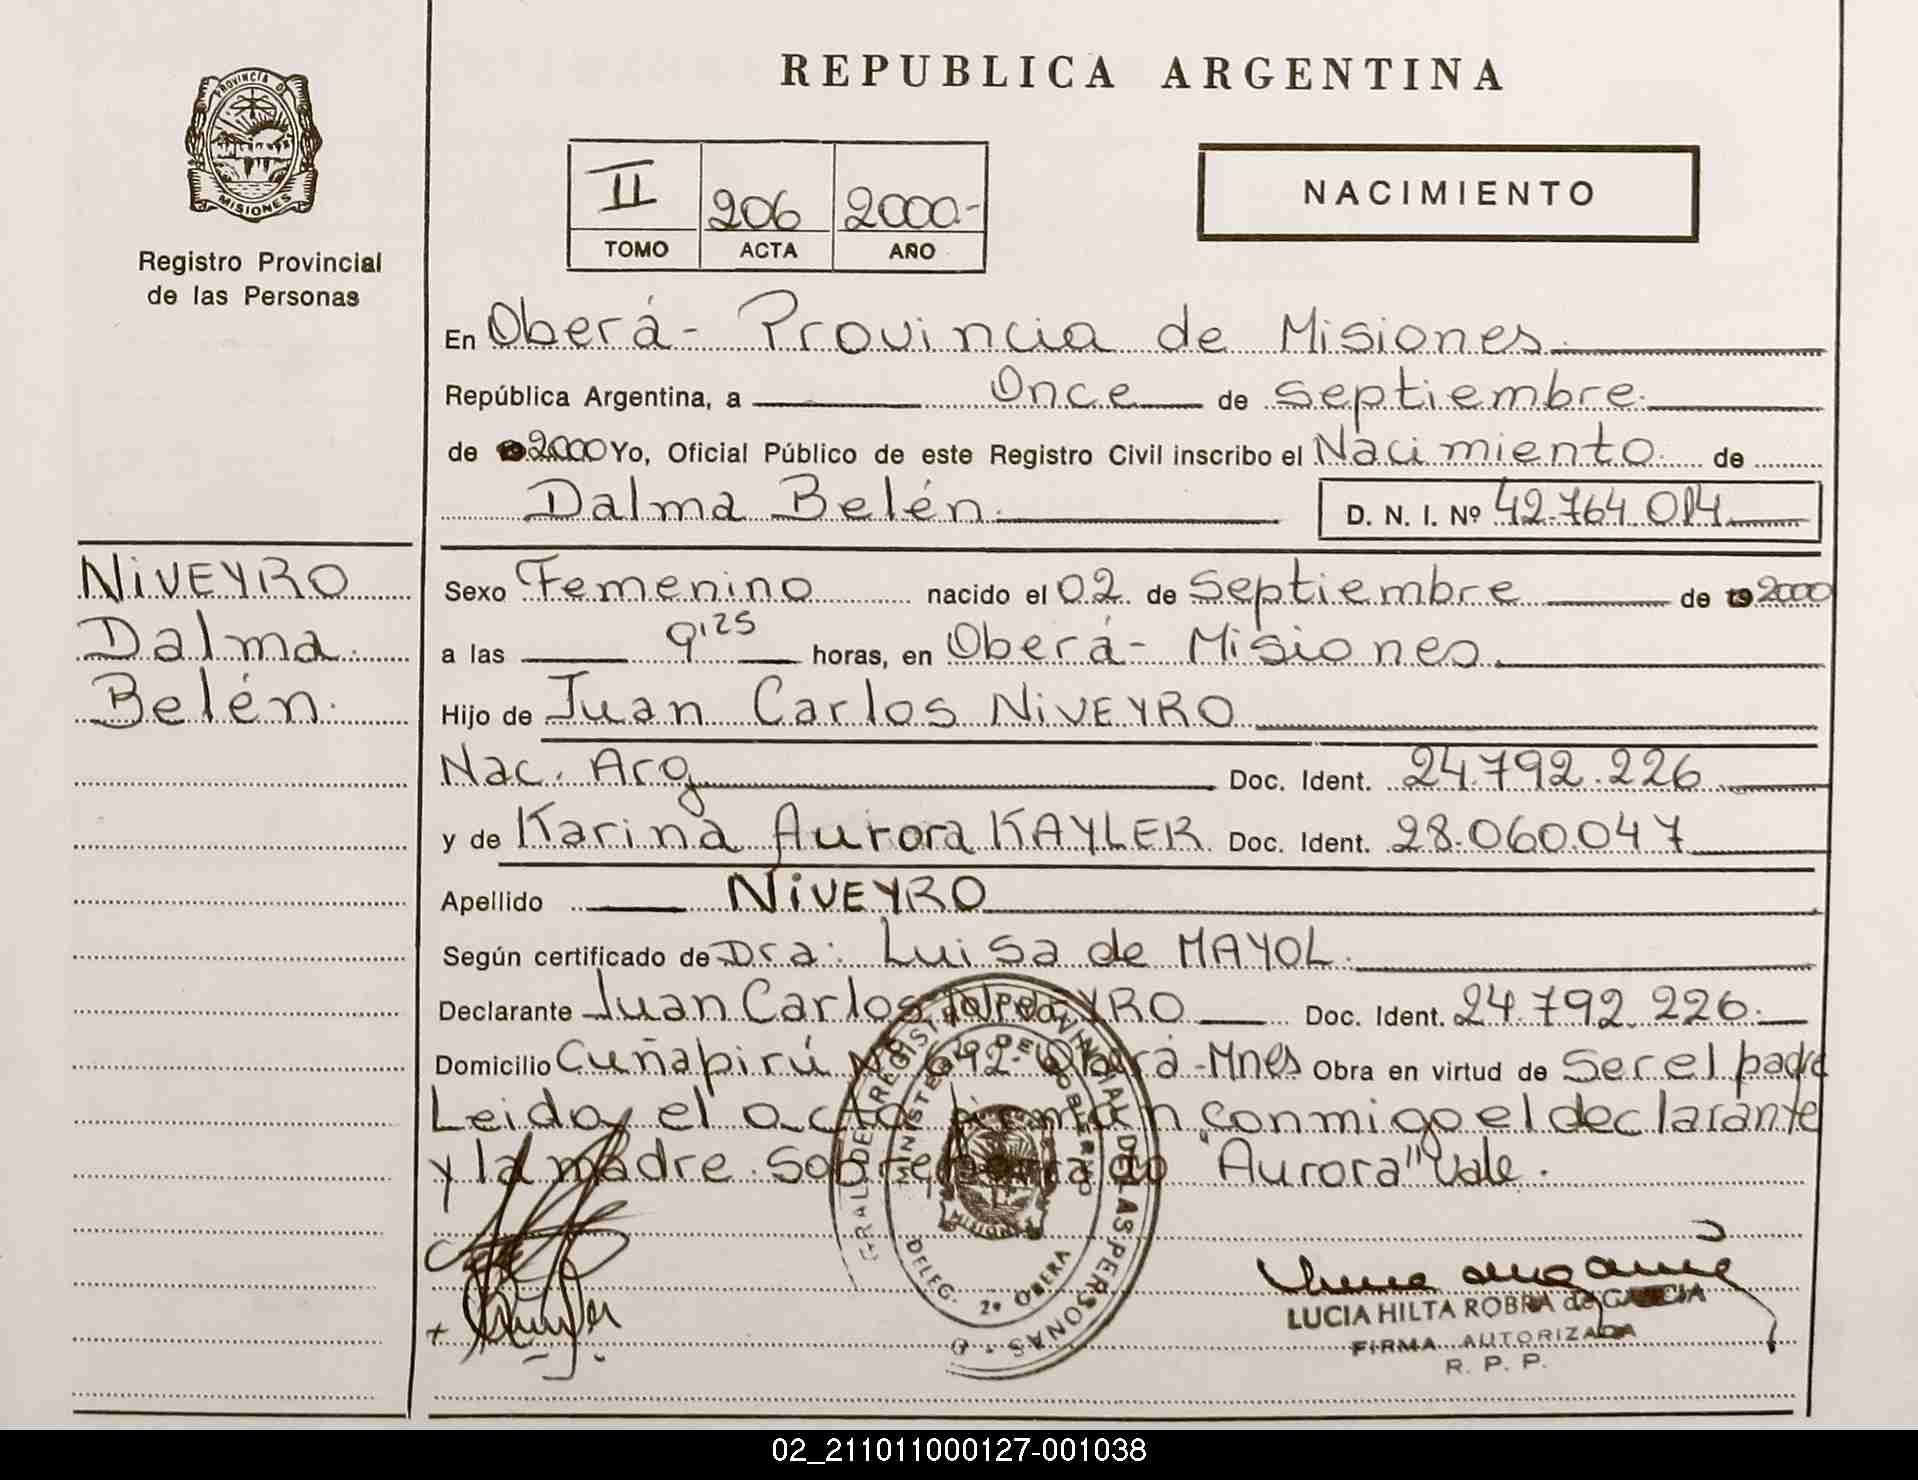 REPUBLICA ARGENTINA
PROVINCIA DE
MISIONES
Registro Provincial
de las Personas
II 206 2000.-
TOMO ACTA AÑO
NACIMIENTO
En Oberá - Provincia de Misiones.
República Argentina, a Once de septiembre.
de 2000 Yo, Oficial Público de este Registro Civil inscribo el Nacimiento de
Dalma Belén. D. N. I. Nº 42.764.014
NIVEYRO
Dalma.
Belén.
Sexo Femenino nacido el 02 de Septiembre de 19 2000
a las 9'25 horas, en Oberá - Misiones.
Hijo de Juan Carlos NIVEYRO
Nac. Arg Doc. Ident. 24.792.226
y de Karina Aurora KAYLER. Doc. Ident. 28.060.047
Apellido NIVEYRO
Según certificado de Dra: Luisa de MAYOL.
Declarante Juan Carlos NIVEYRO Doc. Ident. 24.792.226.
Domicilio Cuñapirú Nº 642- Oberá -Mnes Obra en virtud de Ser el padre
Leida el acta firman conmigo el declarante
y la madre. Sobreborrado "Aurora" Vale.
REGISTRO PROVINCIAL DE LAS PERSONAS
MINISTERIO DE GOBIERNO
MISIONES
DELEG. 2º OBERA
LUCIA HILTA ROBRA de GARCIA
FIRMA AUTORIZADA
R. P. P.
02_211011000127-001038